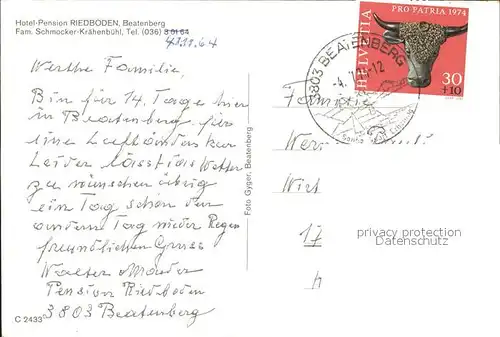 Hotel-Pension RIEDBODEN, Beatenberg
Fam. Schmocker-Krähenbühl, Tel. (036) 3 01 64
41 11 64
PRO PATRIA 1974
HELVETIA
30
+10
3803 BEATENBERG
Werthe Familie,
Bin für 14. Tage hier
in Beatenberg für
eine Luftänderkur
Leider lässt das Wetter
zu wünschen übrig
ein Tag schön den
andern Tag nieder Regen
freundlichen Gruss
Walter
Pension Riedboden
3803 Beatenberg
Familie
Wer
Wirt
17
privacy protection
Datenschutz
Foto Gyger, Beatenberg
C 2433